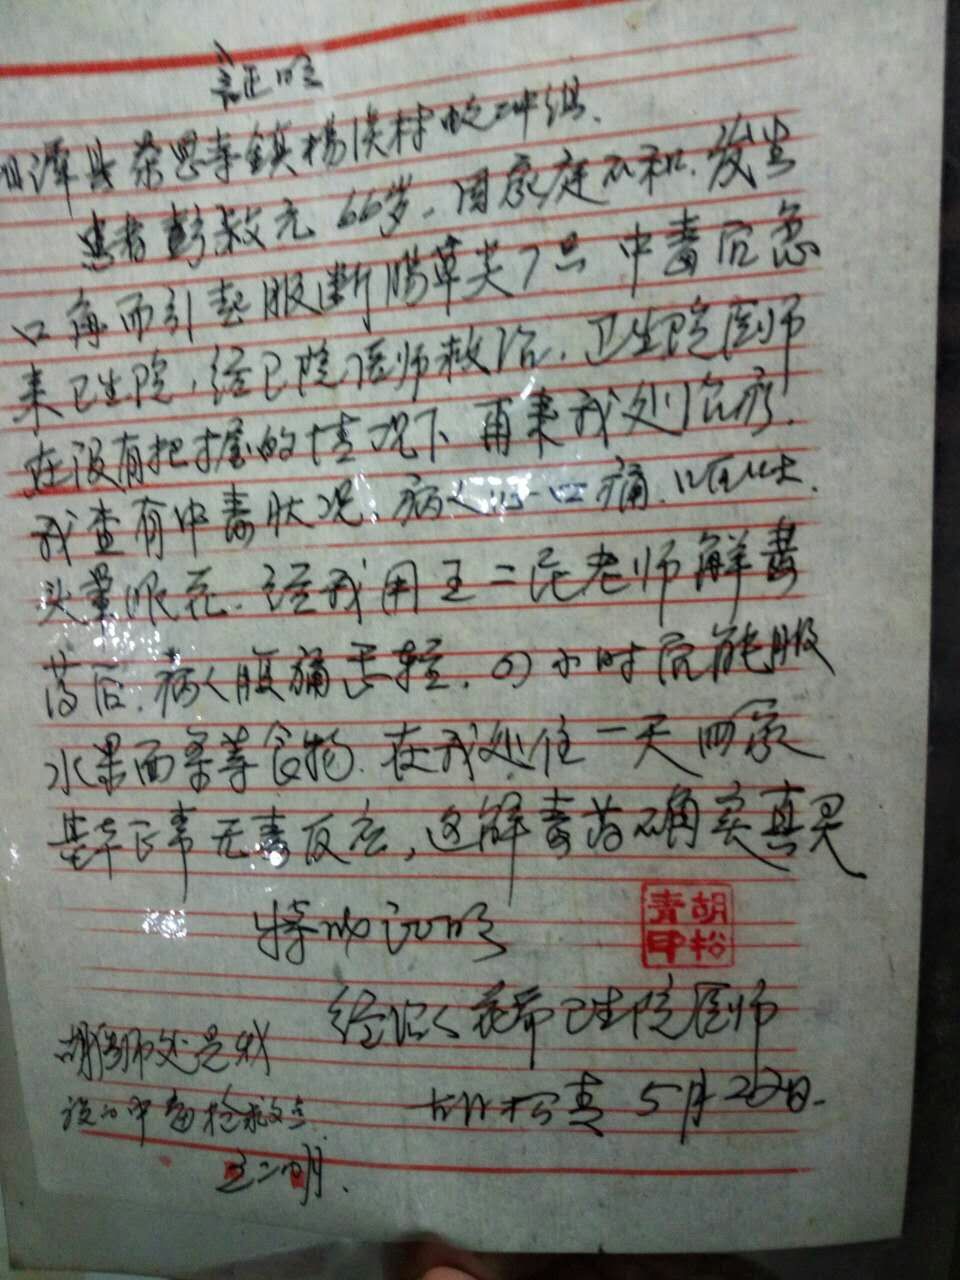 証明
潭县茶恩寺镇杨溪村 冲组.
患者彭 元 66岁. 因家庭不和. 发生
口角而引起服断肠草尖7只 中毒 急
来卫生院, 经卫院医师救治. 卫生院医师
在没有把握的情况下 再来我处治疗.
我查有中毒状况, 病人心口痛. 呕吐.
头晕眼花. 经我用王二 老师解毒
药后. 病人腹痛 轻. 小时 能服
水果面条等食物. 在我处住一天 回家
基本正常无毒反应, 这解毒药确实真灵
特此说明
胡松青印
经治人 卫生院医师
胡松青 5月 日.
胡 师处是我
设的中毒抢救点.
王二明.